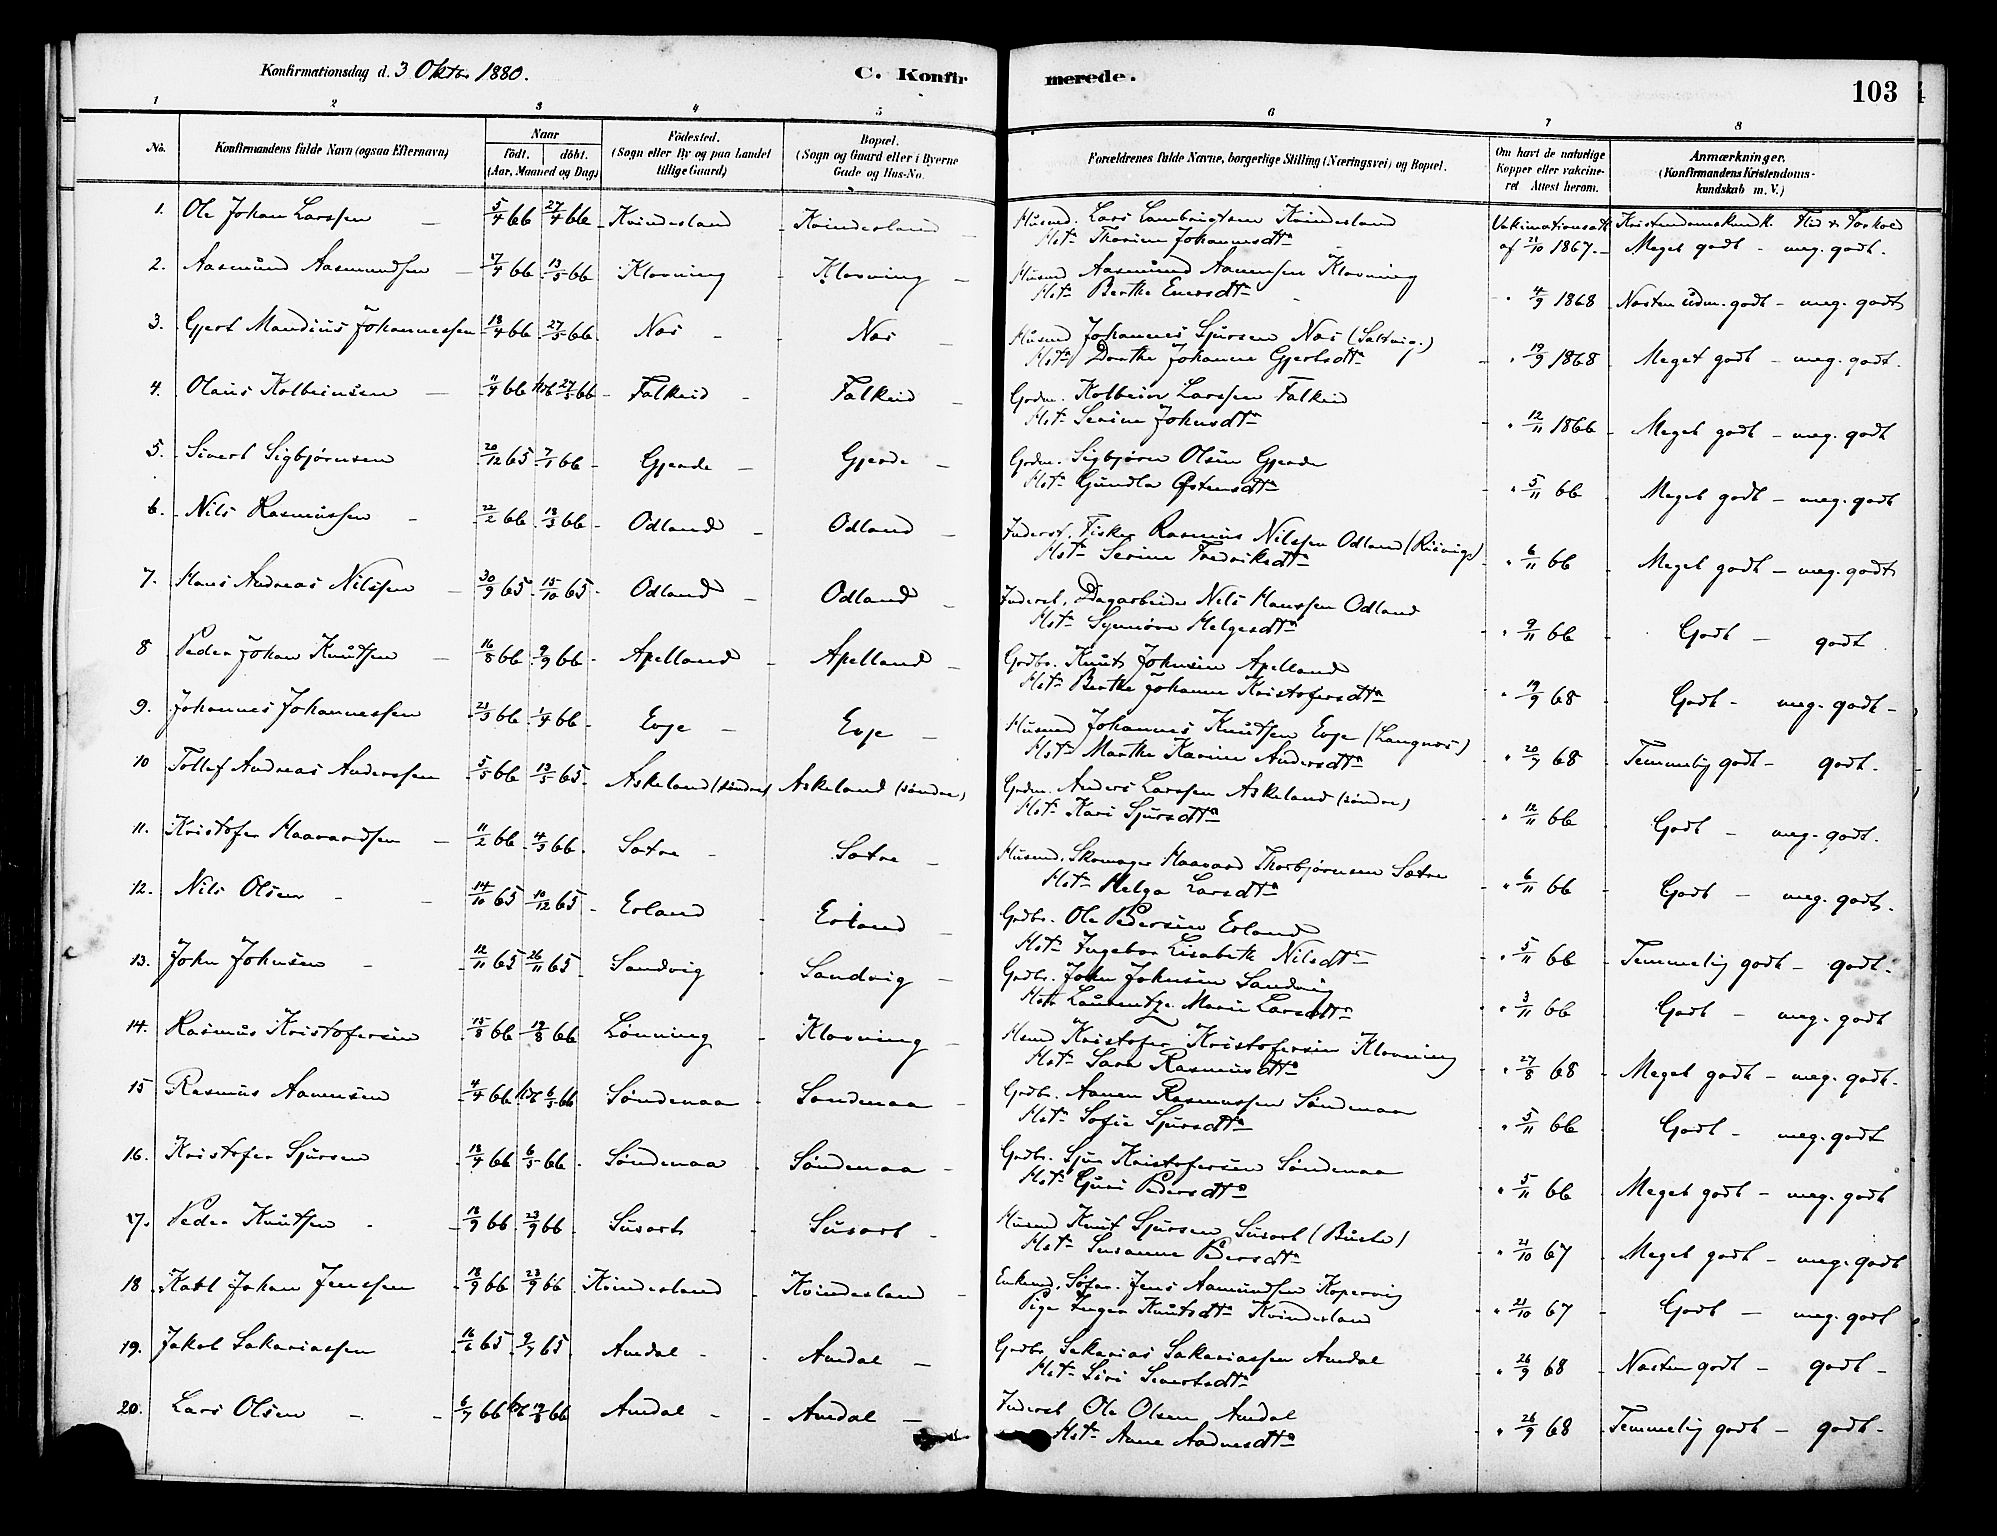 Konfirmationsdag d. 3 Oktbr 1880.
C. Konfirmerede.
103
1 2 3 4 5 6 7 8
No. Konfirmandens fulde Navn (ogsaa Efternavn) Naar födt. döbt. (Aar, Maaned og Dag) Födested. (Sogn eller By og paa Landet tillige Gaard) Bopæl. (Sogn og Gaard eller i Byerne Gade og Hus-No. Forældrenes fulde Navne, borgerlige Stilling (Næringsvei) og Bopæl. Om havt de naturlige Kopper eller vakcineret Attest herom. Anmærkninger. (Konfirmandens Kristendomskundskab m. V.)
1. Ole Johan Larssen 5/4 66 27/4 66 Kvindesland Kvindesland Husmd. Lars Lambrigtsen Kvindesland Vakcinationsatt. Kristendomskundk. Flid & Forhold
Hst. Thorine Johannesdtr af 21/10 1867. Meget godt - meg. godt.
2. Aasmund Aasmundsen 17/4 66 13/5 66 Klovning Klovning Husmd Aasmund Aanensen Klovning
Hst. Berthe Enersdtr " 4/9 1868 Næsten udm. godt - meg. godt
3. Gjert Mandius Johannessen 18/4 66 27/5 66 Næs Næs Husmd Johannes Sjursen Næs (Saltvig.)
Hst. Dorthe Johanne Gjertsdtr " 19/9 1868 Meget godt - meg. godt.
4. Olaus Kolbeinsen 11/4 66 27/5 66 Falkeid Falkeid Grdm. Kolbein Larssen Falkeid
Hst. Serine Johnsdtr " 12/11 1866 Meget godt - meg. godt
5. Sivert Sigbjørnsen 20/12 65 7/1 66 Gjerde Gjerde Grdm. Sigbjørn Olsen Gjerde
Hst. Gundla Østensdtr " 5/11 66 Meget godt - meg. godt
6. Nils Rasmussen 22/2 66 18/3 66 Odland Odland Inderst. Fisker Rasmus Nilssen Odland
Hst. Serine Fredriksdtr " 6/11 66 Meget godt - meg. godt
7. Hans Andreas Nilssen 30/9 65 15/10 65 Odland Odland Inderst, Dagarbeider Nils Hanssen Odland
Hst. Synnøve Helgesdtr " 9/11 66 Godt - godt
8 Peder Johan Knutsen 16/8 66 9/9 66 Apelland Apelland Grdbr. Knut Johnsen Apelland
Hst. Berthe Johanne Kristofersdtr " 19/9 68 Godt - meg. godt -
9. Johannes Johannessen 21/3 66 1/4 66 Evje Evje Husmd Johannes Knutsen Evje (Langnæs)
Hst. Marthe Karine Andersdtr " 20/7 68 Temmelig godt - godt.
10 Tollef Andreas Anderssen 5/5 66 13/5 65 Askeland (søndre) Askeland (søndre) Grdm. Anders Larssen Askeland (søndre)
Hst. Kari Sjursdtr " 12/11 66 Godt - meg. godt.
11. Kristofer Haavardsen 11/2 66 4/3 66 Sætre Sætre Husmd. Skomager Haavard Thorbjørnsen Sætre
Hst. Helga Larsdtr " 6/11 66 Godt - meg. godt.
12. Nils Olsen 14/10 65 10/12 65 Erland Erland Grdbr. Ole Pedersen Erland
Hst. Ingebor Lisabeth Nilsdtr " 5/11 66 Temmelig godt - godt.
13. John Johnsen 12/11 65 26/11 65 Sandvig Sandvig Grdbr. John Johnsen Sandvig
Hst. Laurentze Marie Larsdtr " 3/11 66 Godt - meg. godt
14. Rasmus Kristofersen 15/8 66 19/8 66 Lønning Klovning Hsmd Kristofer Kristofersen Klovning
Hst. Sara Rasmusdtr " 27/8 68 Meget godt - meg. godt.
15 Rasmus Aanensen 4/4 66 6/5 66 Søndenaa Søndenaa Grdbr. Aanen Rasmussen Søndenaa
Hst. Sofie Sjursdtr " 5/11 66 Godt - meg. godt
16. Kristofer Sjursen 18/4 66 6/5 66 Søndenaa Søndenaa Grdbr. Sjur Kristofersen Søndenaa
Hst. Guri Pedersdtr " 5/11 66 Meget godt - meg. godt
17. Peder Knutsen 18/9 66 23/9 66 Susort Susort Husmd Knut Sjursen Susort
Hst. Susanne Pedersdtr " 21/10 67 Meget godt - meg. godt
18 Karl Johan Jenssen 18/9 66 23/9 66 Kvindesland Kvindesland Enkemd. Søfar. Jens Aamundsen Kopervig
Pige Inger Knutsdtr Kvindesland " 21/10 67 Godt - meg. godt
19. Jakob Sakariassen 16/6 65 9/7 65 Amdal Amdal Grdbr. Sakarias Sakariassen Amdal
Hst. Siri Sivertsdtr " 26/9 68 Næsten godt - godt -
20. Lars Olsen 6/7 66 19/8 66 Amdal Amdal Inderst Ole Olsen Amdal
Hst. Anne Aadnesdtr " 26/9 68 Temmelig godt - godt.